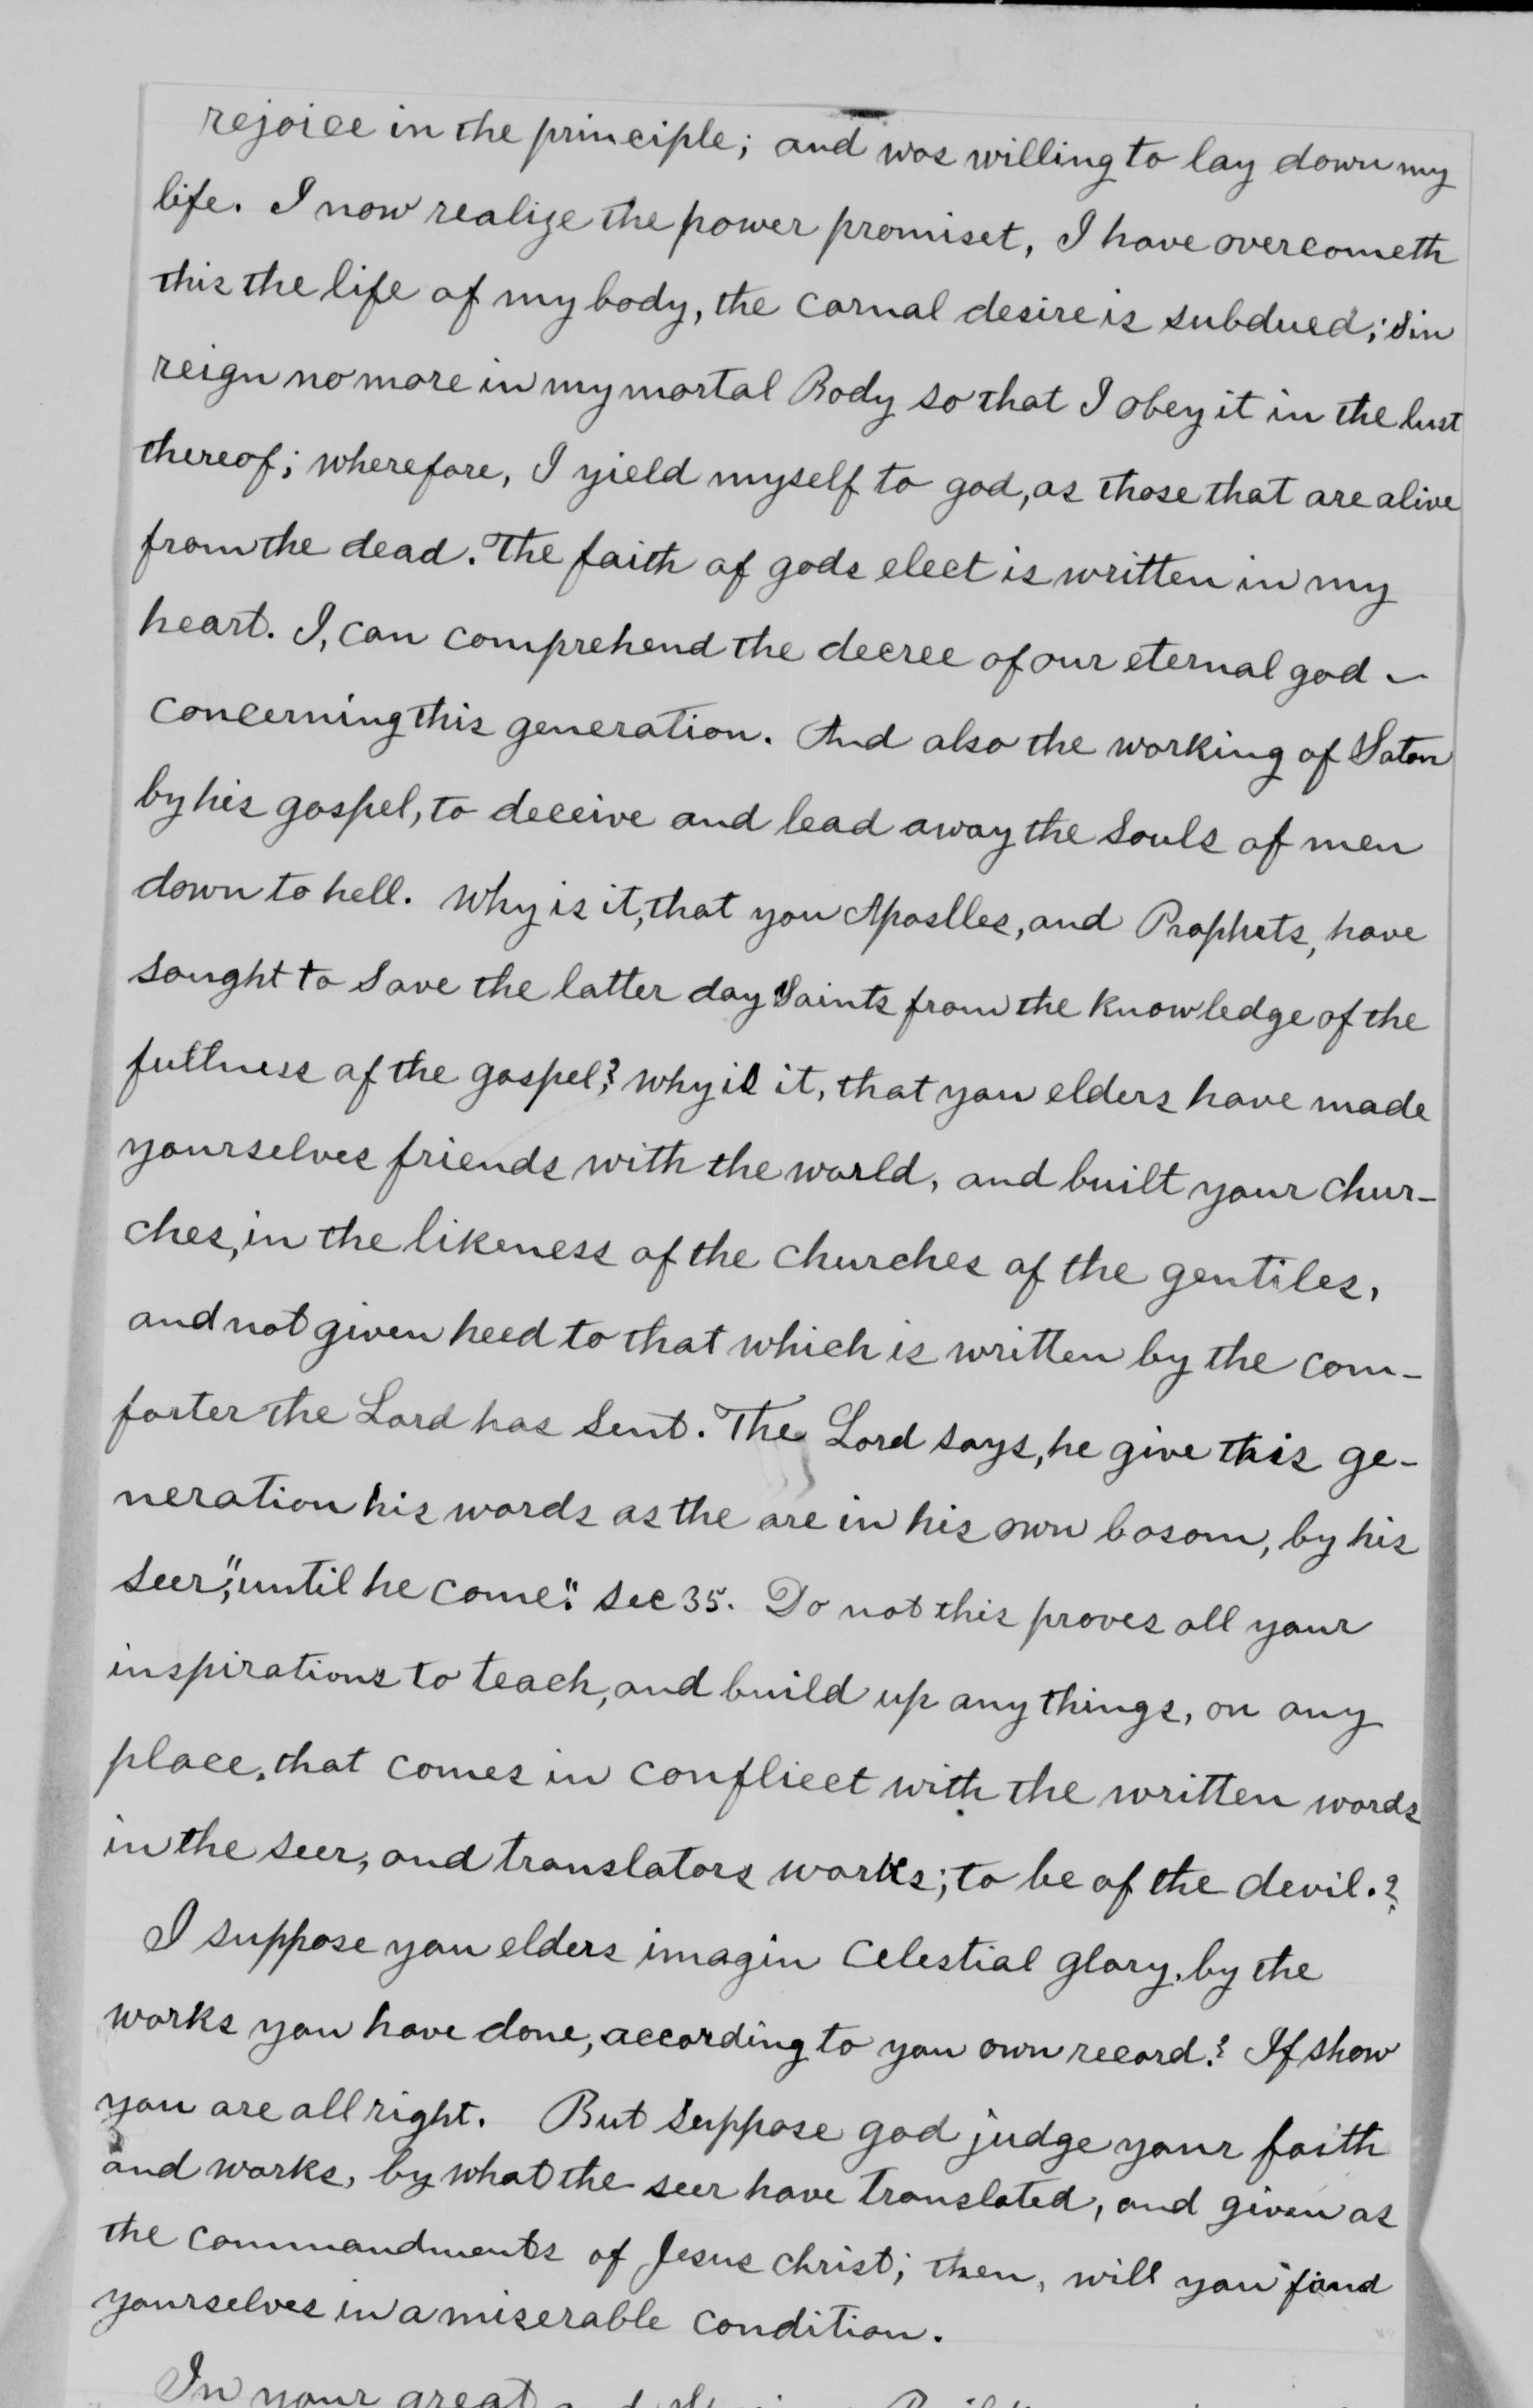 rejoice in the principle; and was willing to lay down my
life. I now realize the power promiset, I have overcometh
this the life of my body, the carnal desire is subdued; Sin
reign no more in my mortal Body so that I obey it in the lust
thereof; wherefore, I yield myself to god, as those that are alive
from the dead. The faith of gods elect is written in my
heart. I, can comprehend the decree of our eternal god ~
concerning this generation. And also the working of Satan
by his gospel, to deceive and lead away the Souls of men
down to hell. Why is it, that you Aposlles, and Prophets, have
sought to Save the latter day Saints from the knowledge of the
fullness of the gospel? why is it, that you elders have made
yourselves friends with the world, and built your chur-
ches, in the likeness of the churches of the gentiles,
and not given heed to that which is written by the com-
forter the Lord has Sent. The Lord says, he give this ge-
neration his words as the are in his own bosom, by his
seer, "until he come". sec 35. Do not this proves all your
inspirations to teach, and build up any things, on any
place, that comes in conflicct with the written words
in the seer, and translators works; to be of the devil.?
I suppose you elders imagin Celestial glory, by the
works you have done, according to you own record? If show
you are all right. But suppose god judge your faith
and works, by what the seer have translated, and given as
the commandments of Jesus christ; then, will you find
yourselves in a miserable condition.
In your great and